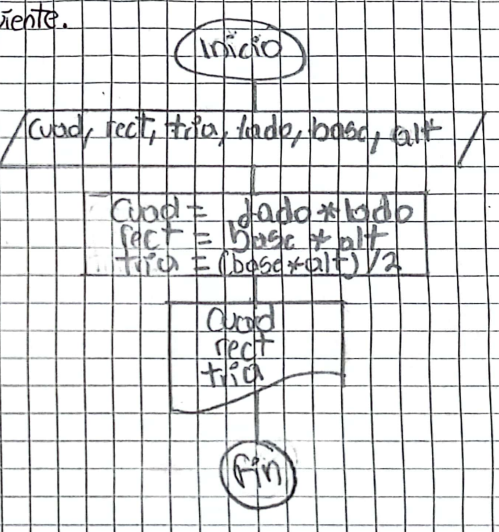 iente.
Inicio
cuad, rect, tria, lado, base, alt
cuad = lado * lado
rect = base * alt
tria = (base * alt) / 2
cuad
rect
tria
Fin